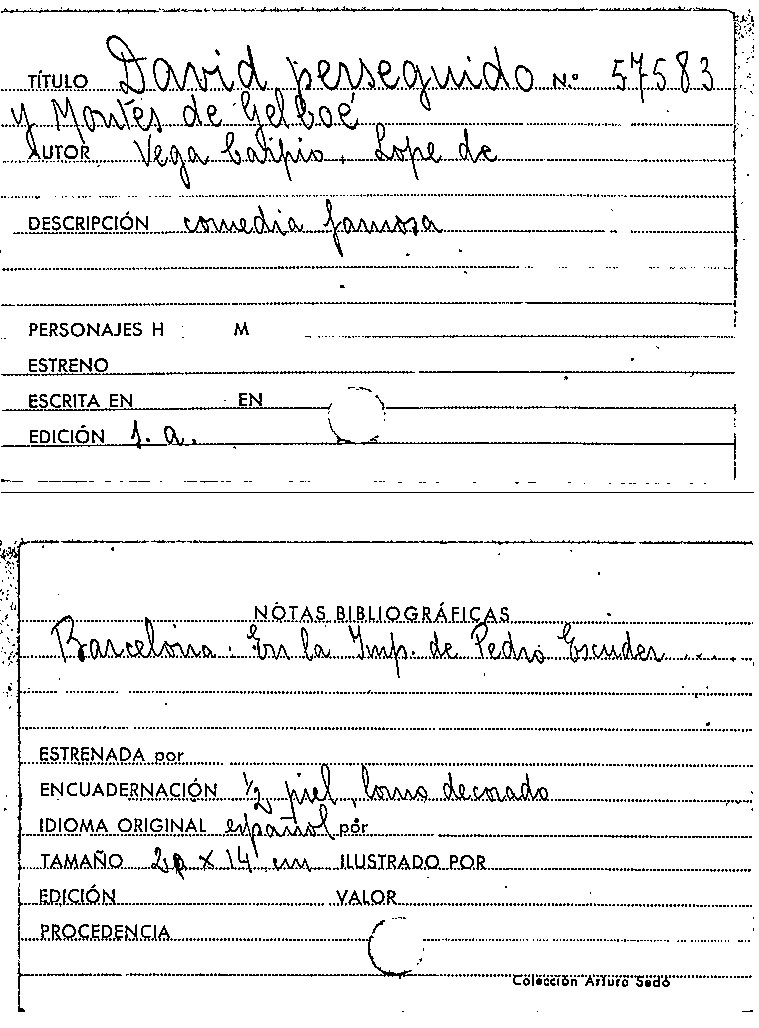 TÍTULO David perseguido N.º 57583
y Montes de Gelboé
AUTOR Vega Carpio, Lope de
DESCRIPCIÓN comedia famosa
PERSONAJES H M
ESTRENO
ESCRITA EN EN
EDICIÓN s. a.
NOTAS BIBLIOGRÁFICAS
Barcelona. En la Imp. de Pedro Escuder ....
ESTRENADA por
ENCUADERNACIÓN 1/2 piel, lomo decorado
IDIOMA ORIGINAL español por
TAMAÑO x 14 cm ILUSTRADO POR
EDICIÓN VALOR
PROCEDENCIA
Colección Arturo Sedó